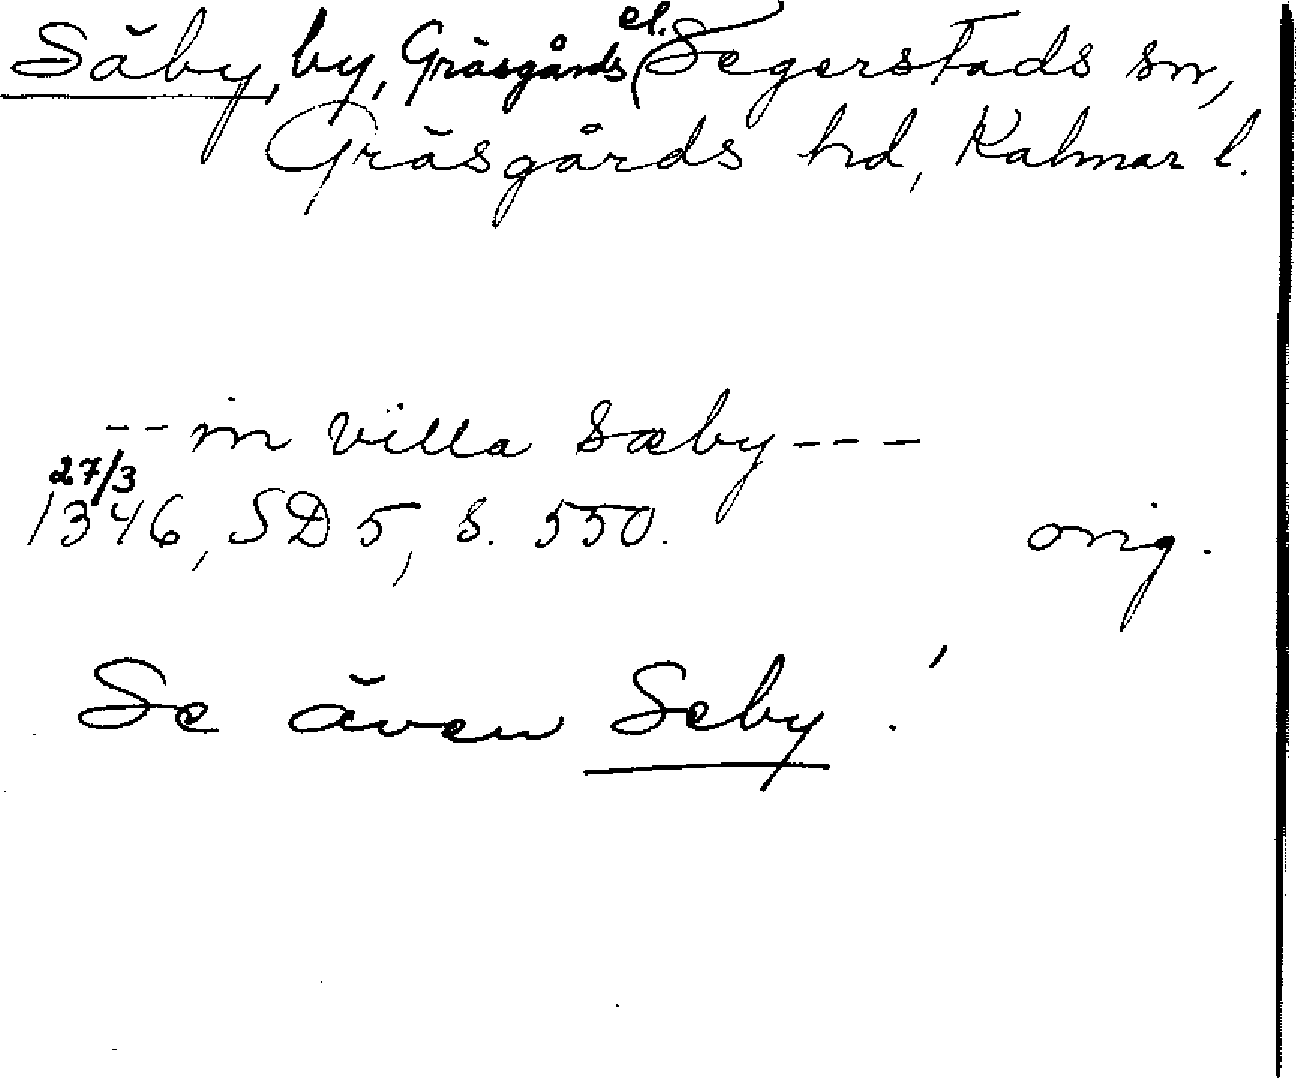 Säby, by, Gräsgårds el. Segerstads sn,
Gräsgårds hd, Kalmar l.
-- in villa Sæby ---
27/3
1346, SD 5, s. 550. orig.
Se även Seby!